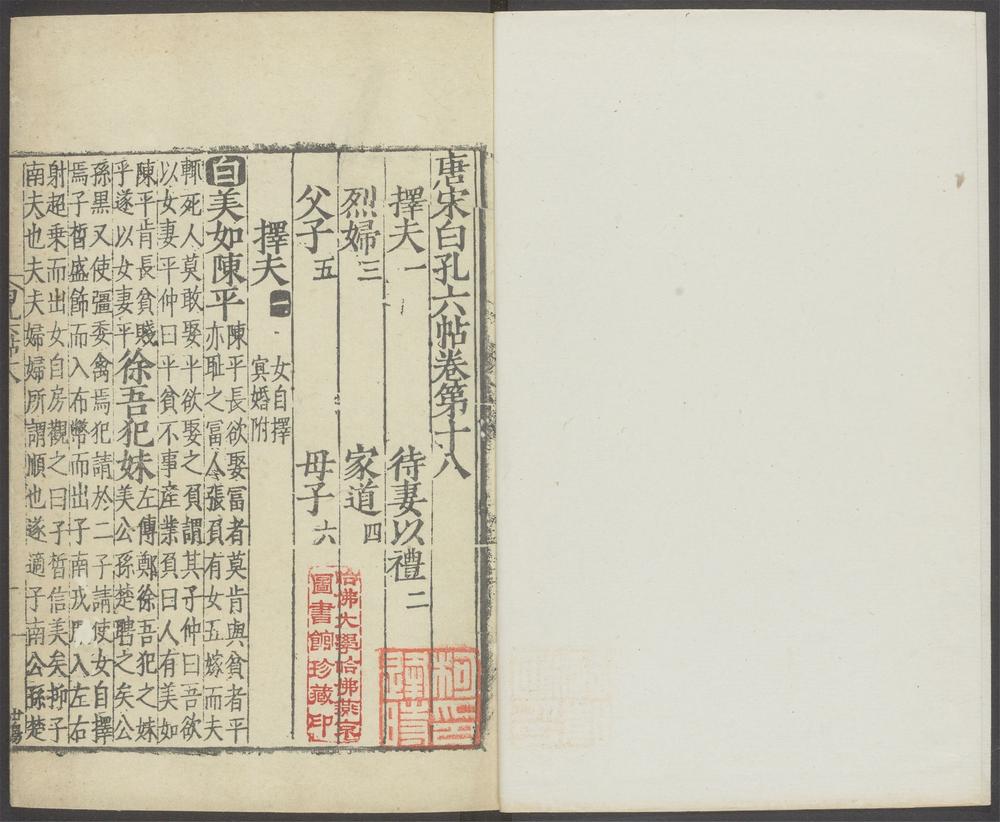 唐宋白孔六帖卷第十八
擇夫一　待妻以禮二
烈婦三　家道四
父子五　母子六
擇夫一　女自擇
冥婚附
白美如陳平　陳平長欲娶冨者莫肯與貧者平
亦耻之冨人張負有女五嫁而夫
輒死人莫敢娶平欲娶之負謂其子仲曰吾欲
以女妻平仲曰平貧不事産業負曰人有美如
陳平肯長貧賤
乎遂以女妻平
徐吾犯妹　左傳鄭徐吾犯之妹
美公孫楚聘之矣公
孫黒又使彊委禽焉犯請於二子請使女自擇
焉子晳盛飾而入布幣而出子南戎服入左右
射超乘而出女自房觀之曰子晳信美矣抑子
南夫也夫夫婦婦所謂順也遂適子南公孫楚
哈佛大學哈佛燕京
圖書館珍藏印